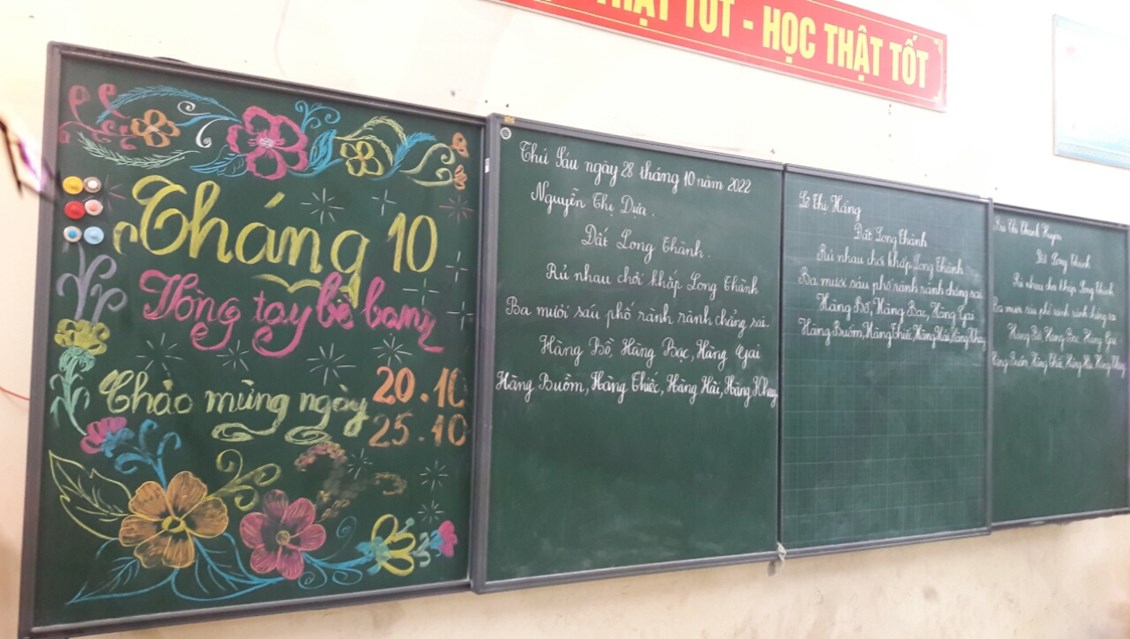 THẬT TỐT - HỌC THẬT TỐT
Tháng 10
Vòng tay bè bạn
Chào mừng ngày 20.10
25.10
Thứ Sáu ngày 28 tháng 10 năm 2022
Nguyễn Thị Dựa.
Đất Long Thành.
Rủ nhau chơi khắp Long Thành
Ba mươi sáu phố rành rành chẳng sai.
Hàng Bồ, Hàng Bạc, Hàng Gai
Hàng Buồm, Hàng Thiếc, Hàng Hài, Hàng Khay
Lê Thị Hằng
Đất Long Thành
Rủ nhau chơi khắp Long Thành
Ba mươi sáu phố rành rành chẳng sai
Hàng Bồ, Hàng Bạc, Hàng Gai
Hàng Buồm, Hàng Thiếc, Hàng Hài, Hàng Khay
Thị Thanh Huyền
Đất Long Thành
Rủ nhau chơi khắp Long Thành
Ba mươi sáu phố rành rành chẳng sai
Hàng Bồ, Hàng Bạc, Hàng Gai
Hàng Buồm, Hàng Thiếc, Hàng Hài, Hàng Khay